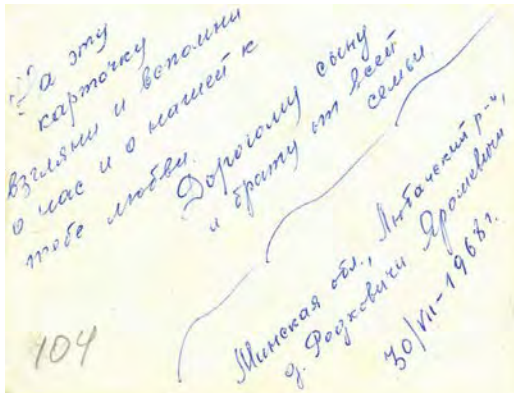 На эту
карточку
взгляни и вспомни
о нас и о нашей к
тебе любви.
Дорогому сыну
и брату от всей
семьи.
Минская обл., р-н,
д. Ярошевичи
30/VII-1968г.
104